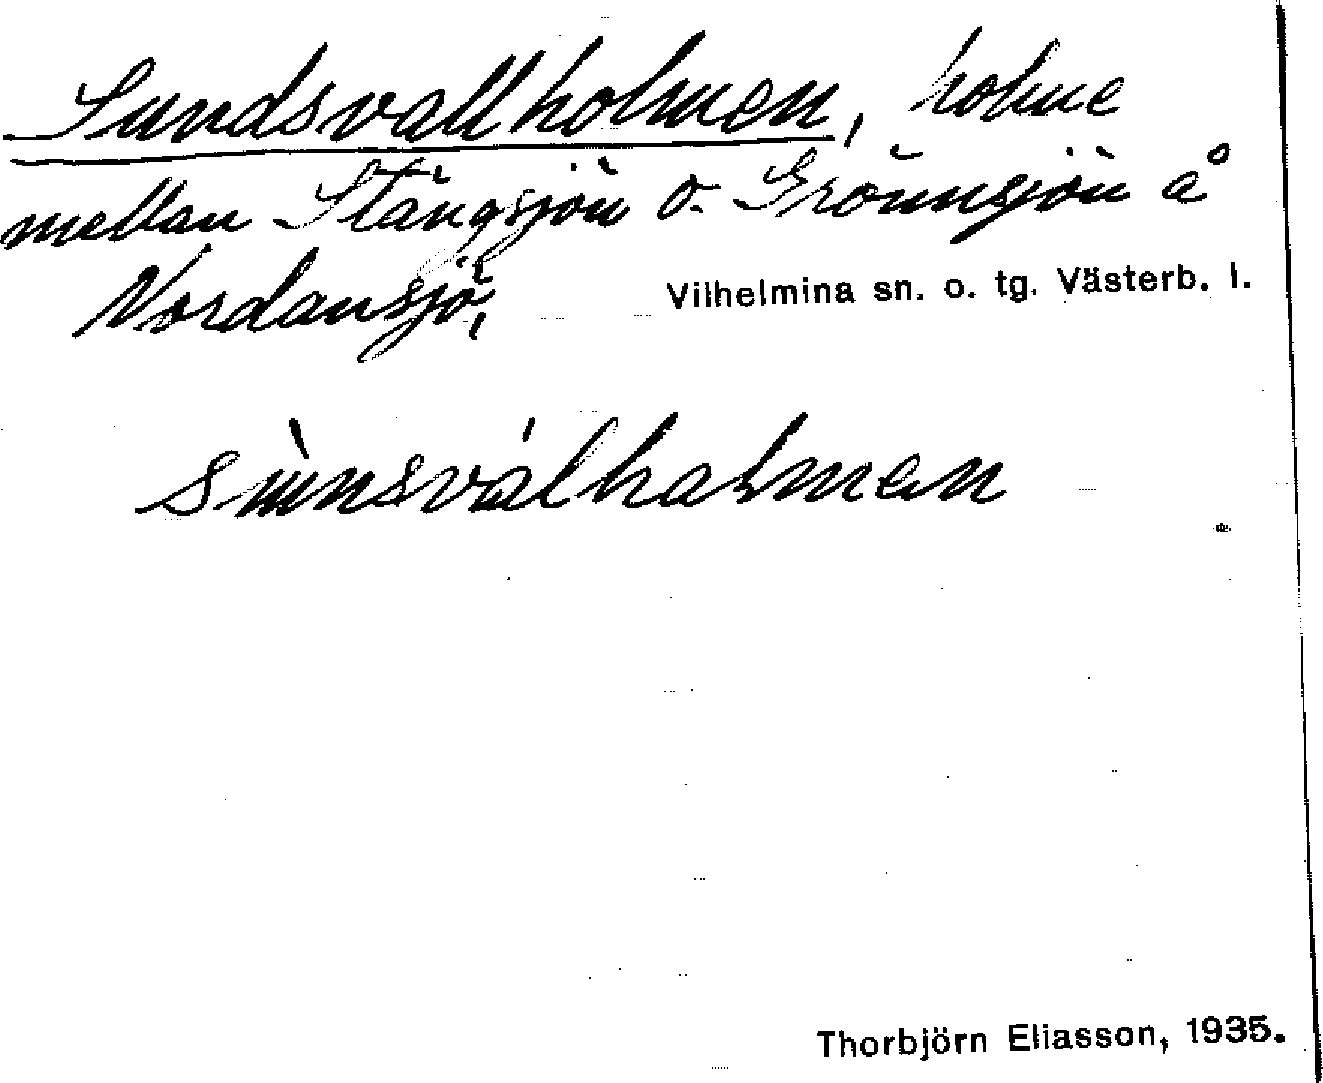 Sundsvallholmen, holme
mellan Stängsjön o. Grönnsjön å
Nordansjö,
Vilhelmina sn. o. tg. Västerb. l.
sùnsválholmen
Thorbjörn Eliasson, 1935.